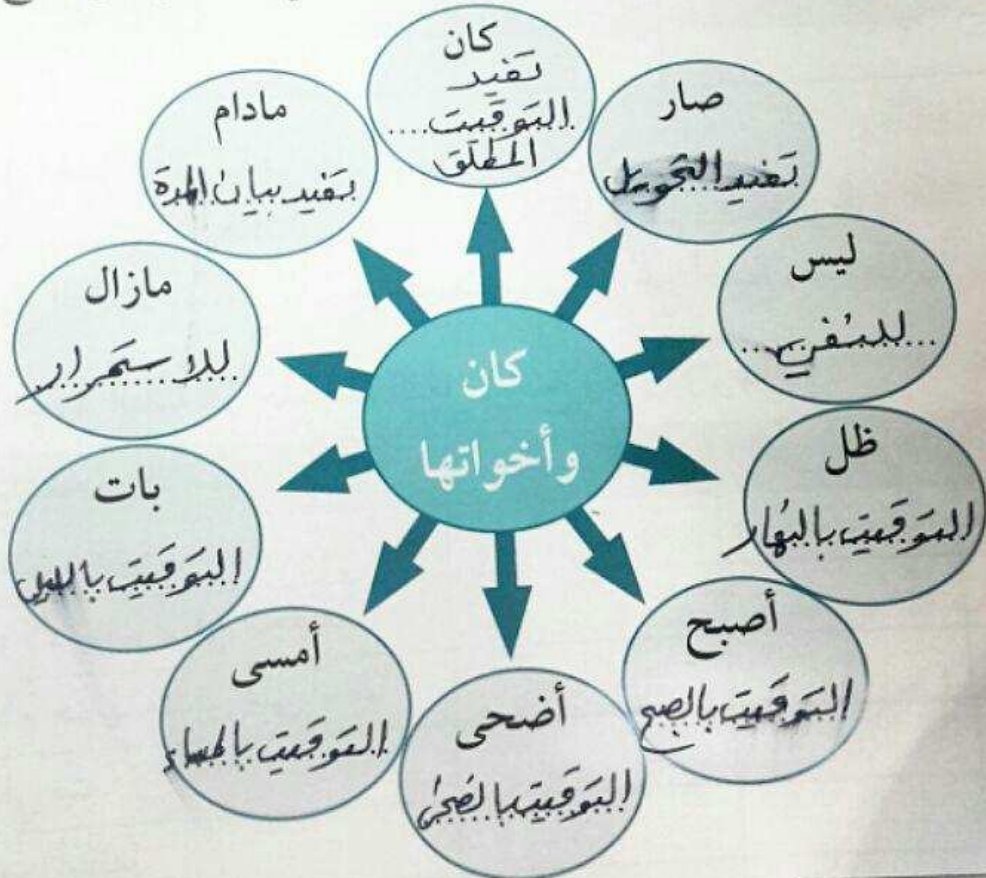 كان
وأخواتها
كان
تفيد
التوقيت....
المطلق
صار
تفيد التحويل
ليس
..للنفي..
ظل
التوقيت بالنهار
أصبح
التوقيت بالصبح
أضحى
التوقيت بالضحى
أمسى
التوقيت بالمساء
بات
التوقيت بالليل
مازال
للاستمرار
مادام
تفيد بيان المدة